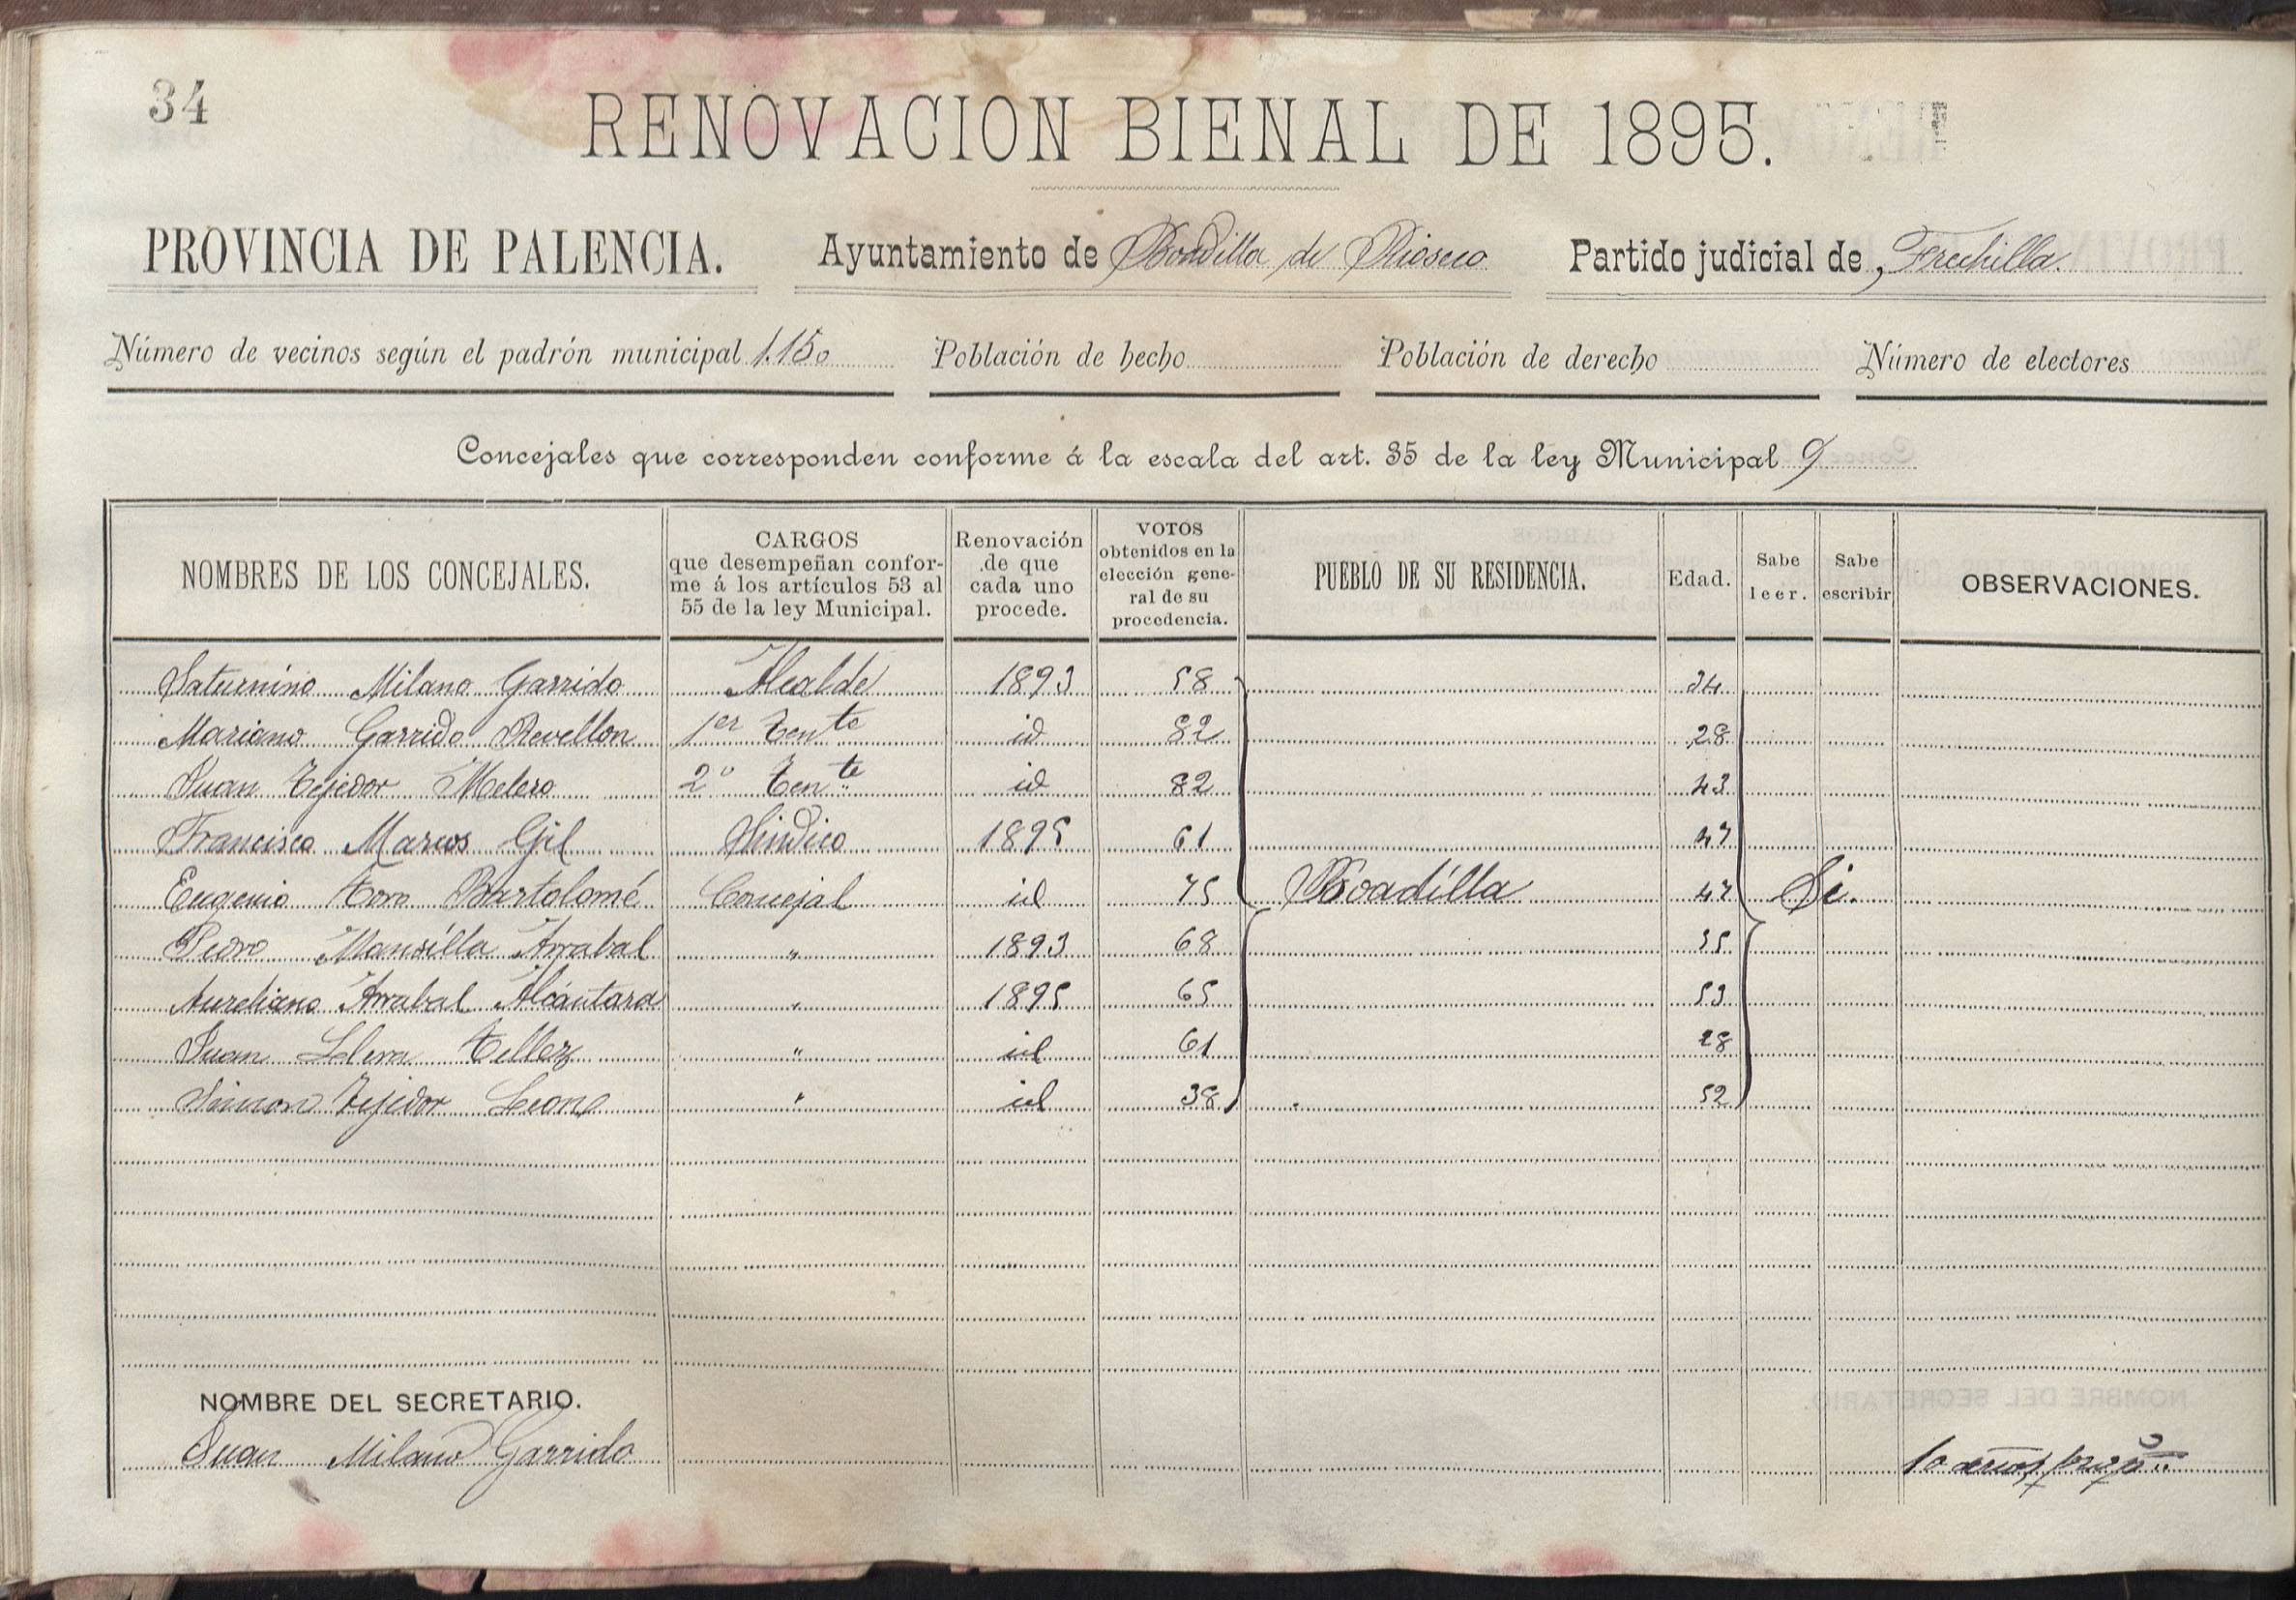 34
RENOVACION BIENAL DE 1895.
PROVINCIA DE PALENCIA. Ayuntamiento de Boadilla de Rioseco Partido judicial de Frechilla.
Número de vecinos según el padrón municipal 1.150 Población de hecho Población de derecho Número de electores
Concejales que corresponden conforme á la escala del art. 35 de la ley Municipal 9
NOMBRES DE LOS CONCEJALES. CARGOS que desempeñan confor- me á los artículos 53 al 55 de la ley Municipal. Renovación de que cada uno procede. VOTOS obtenidos en la elección gene- ral de su procedencia. PUEBLO DE SU RESIDENCIA. Edad. Sabe leer. Sabe escribir OBSERVACIONES.
Saturnino Milano Garrido Alcalde 1893 58 34
Mariano Garrido Revellon 1er Tente id 82 28
Juan Tejedor Melero 2º Tente id 82 43
Francisco Marcos Gil Sindico 1895 61 47
Eugenio Toro Bartolomé Concejal id 75 Boadilla 47 Si.
Pedro Mansilla Arrabal " 1893 68 35
Aureliano Arrabal Alcántara " 1895 65 53
Juan Tellez " id 61 28
Simon Tejedor Leon " id 38 52
NOMBRE DEL SECRETARIO.
Juan Milano Garrido 10 años